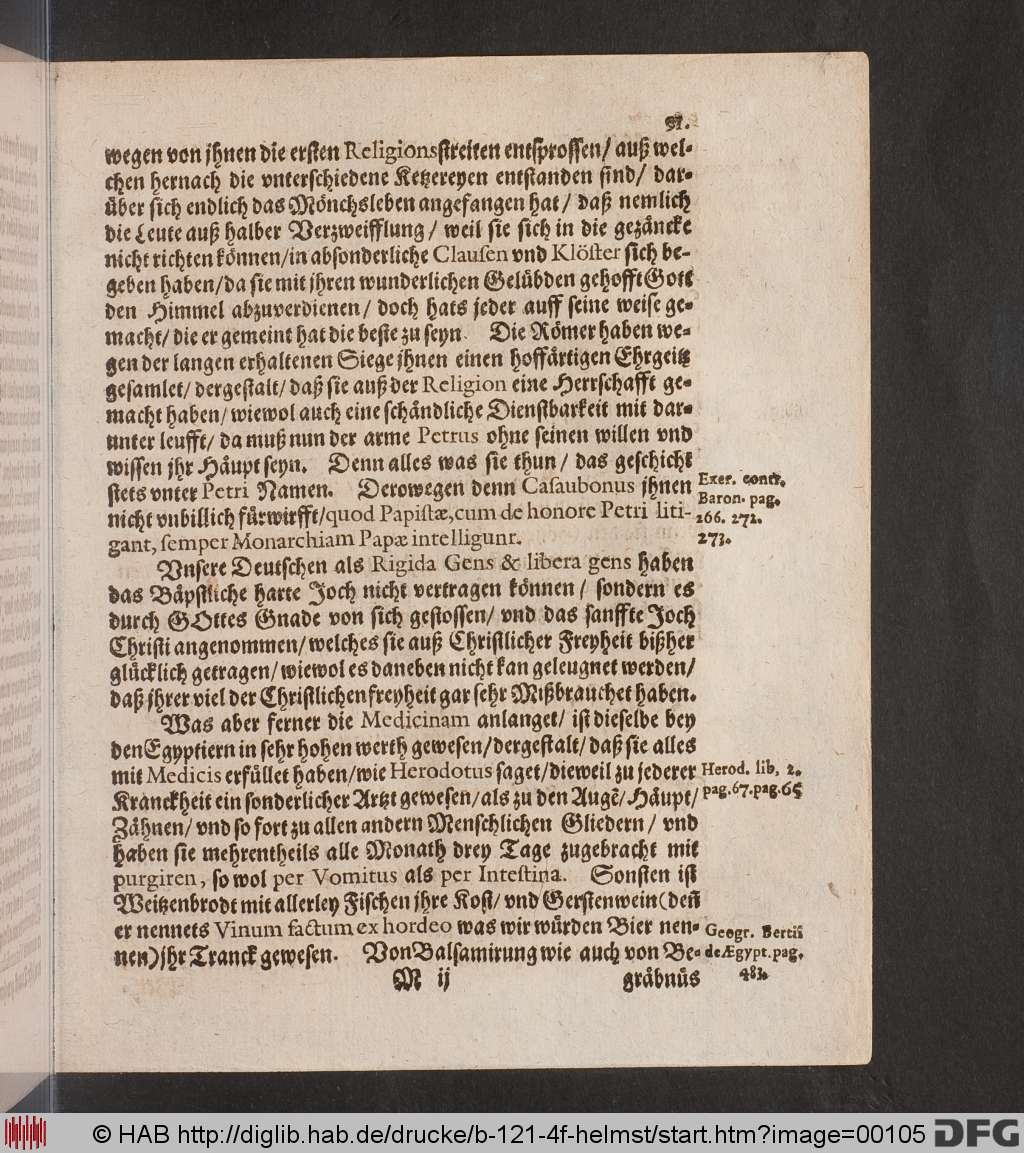 91.
wegen von jhnen die ersten Religionsstreiten entsprossen/ auß wel-
chen hernach die vnterschiedene Ketzereyen entstanden sind/ dar-
über sich endlich das Mönchsleben angefangen hat/ daß nemlich
die Leute auß halber Verzweifflung/ weil sie sich in die gezäncke
nicht richten können/in absonderliche Clausen vnd Klöster sich be-
geben haben/da sie mit jhren wunderlichen Gelübden gehofft Gott
den Himmel abzuverdienen/ doch hats jeder auff seine weise ge-
macht/ die er gemeint hat die beste zu seyn. Die Römer haben we-
gen der langen erhaltenen Siege jhnen einen hoffärtigen Ehrgeitz
gesamlet/ dergestalt/ daß sie auß der Religion eine Herrschafft ge-
macht haben/ wiewol auch eine schändliche Dienstbarkeit mit dar-
unter leufft/ da muß nun der arme Petrus ohne seinen willen vnd
wissen jhr Häupt seyn. Denn alles was sie thun/ das geschicht
stets vnter Petri Namen. Derowegen denn Casaubonus jhnen
nicht vnbillich fürwirfft/quod Papistæ,cum de honore Petri liti-
gant, semper Monarchiam Papæ intelligunr.
Exer. contr.
Baron. pag.
266. 272.
273.
Vnsere Deutschen als Rigida Gens & libera gens haben
das Bäpstliche harte Joch nicht vertragen können/ sondern es
durch GOttes Gnade von sich gestossen/ vnd das sanffte Joch
Christi angenommen/ welches sie auß Christlicher Freyheit bißher
glücklich getragen/ wiewol es daneben nicht kan geleugnet werden/
daß jhrer viel der Christlichen freyheit gar sehr Mißbrauchet haben.
Was aber ferner die Medicinam anlanget/ ist dieselbe bey
den Egyptiern in sehr hohen werth gewesen/dergestalt/ daß sie alles
mit Medicis erfüllet haben/wie Herodotus saget/dieweil zu jederer
Kranckheit ein sonderlicher Artzt gewesen/als zu den Augẽ/ Häupt/
Zähnen/ vnd so fort zu allen andern Menschlichen Gliedern/ vnd
haben sie mehrentheils alle Monath drey Tage zugebracht mit
purgiren, so wol per Vomitus als per Intestina. Sonsten ist
Weitzenbrodt mit allerley Fischen jhre Kost/ vnd Gerstenwein (deñ
er nennets Vinum factum ex hordeo was wir würden Bier nen-
nen) jhr Tranck gewesen. Von Balsamirung wie auch von Be-
Herod. lib, 2.
pag.67.pag.65
Geogr. Bertii
de Ægypt. pag.
483.
M ij
gräbnüs
© HAB http://diglib.hab.de/drucke/b-121-4f-helmst/start.htm?image=00105 DFG